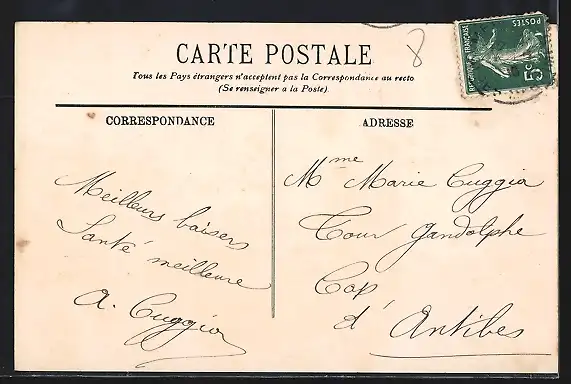 CARTE POSTALE
Tous les Pays étrangers n'acceptent pas la Correspondance au recto
(Se renseigner a la Poste)
8
POSTES
REPUBLIQUE FRANÇAISE
5c
CORRESPONDANCE
Meilleurs baisers
Santé meilleure
A. Cuggia
ADRESSE
Mme Marie Cuggia
Tour Gandolphe
Cap
d'Antibes